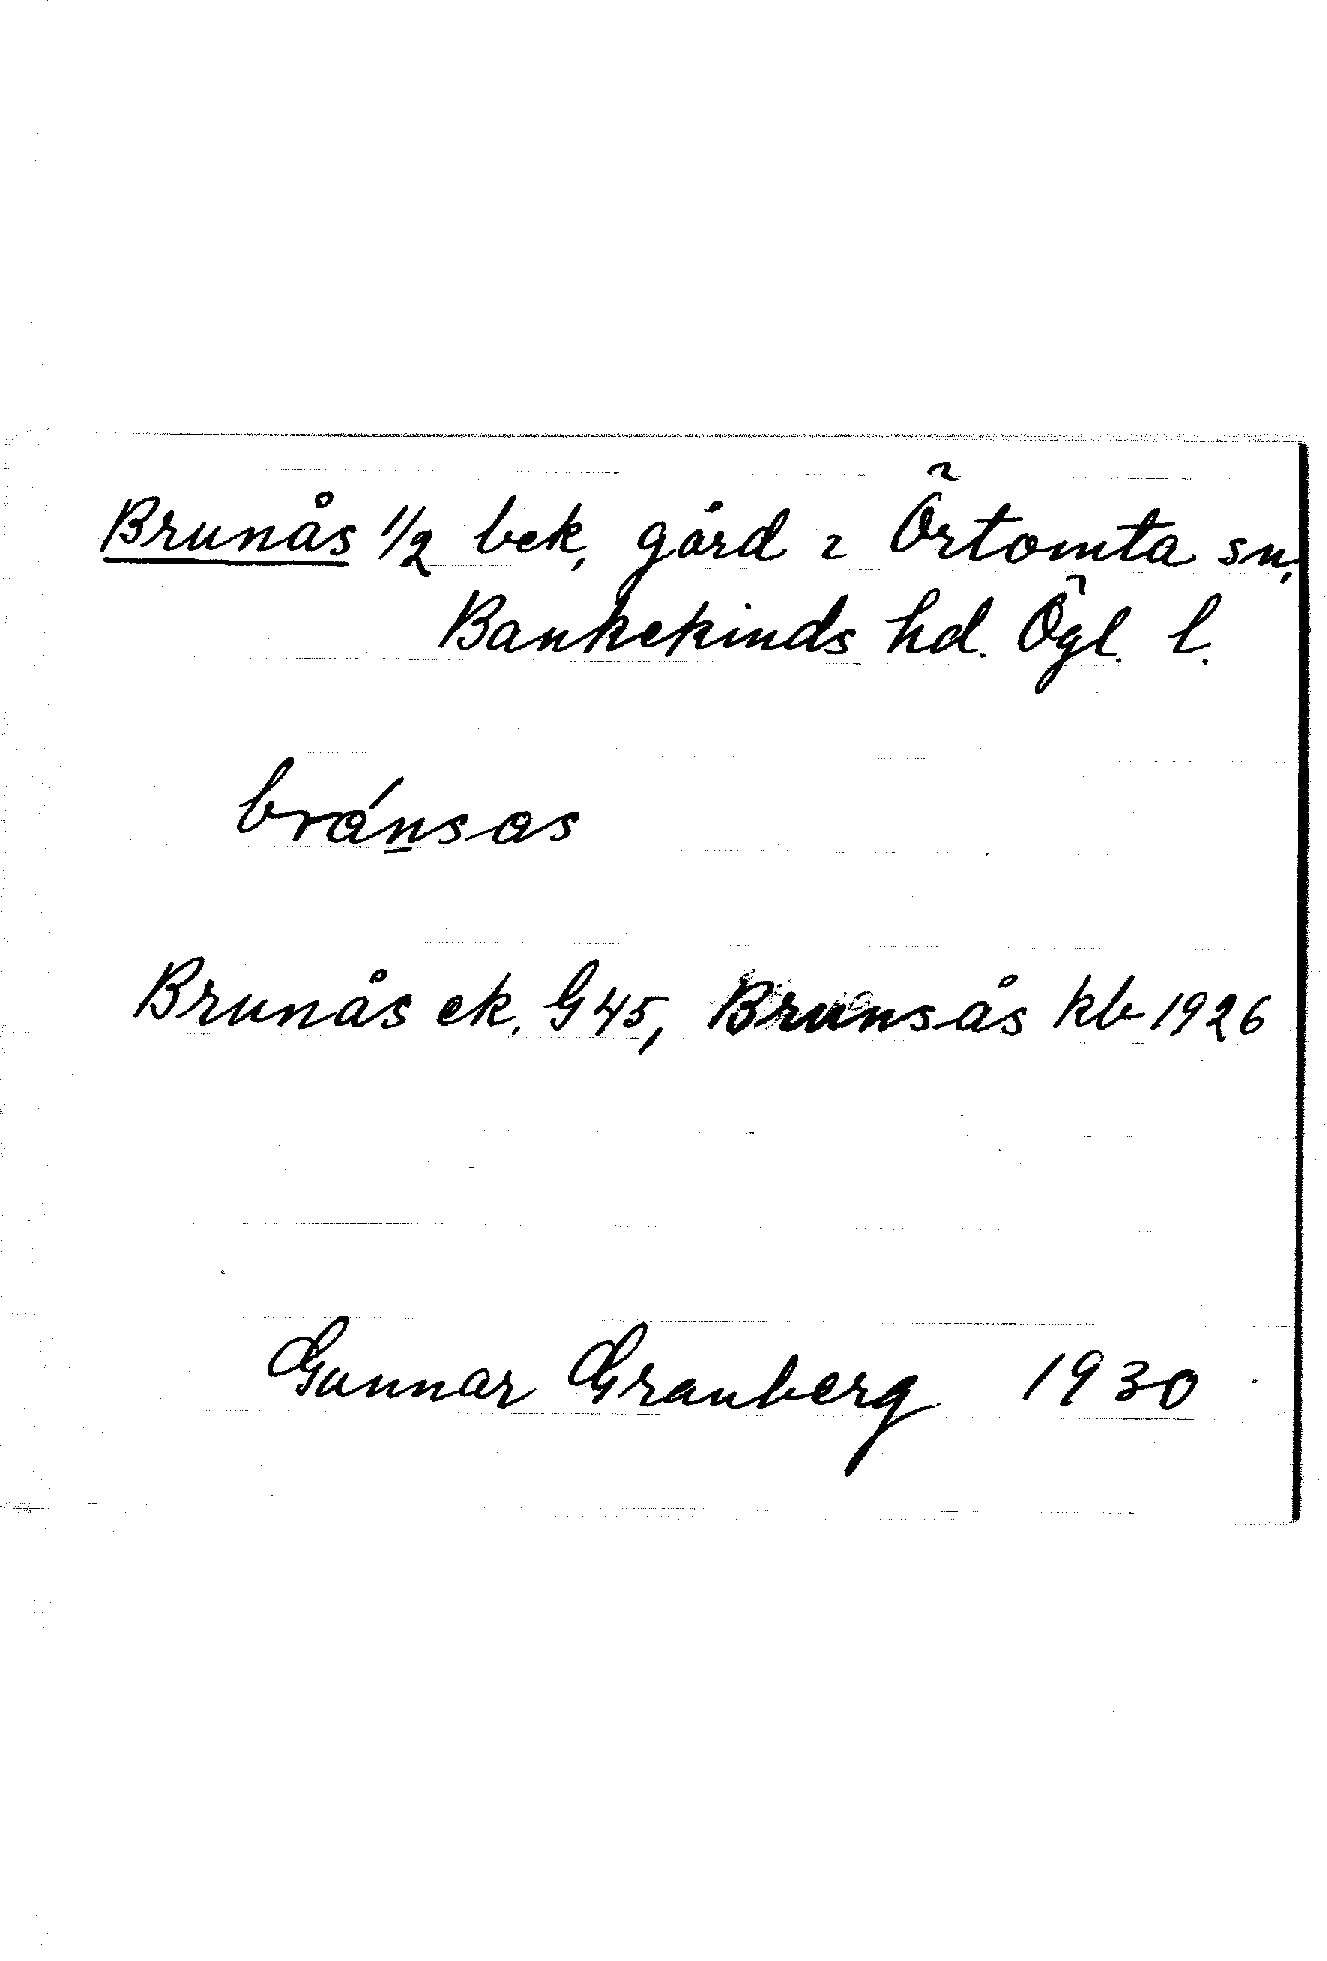 Brunås 1/2 bek, gård i Örtomta sn,
Bankekinds hd. Ögl. l.
bránsas
Brunås ek. G45, Brunsås kb 1926
Gunnar Granberg 1930